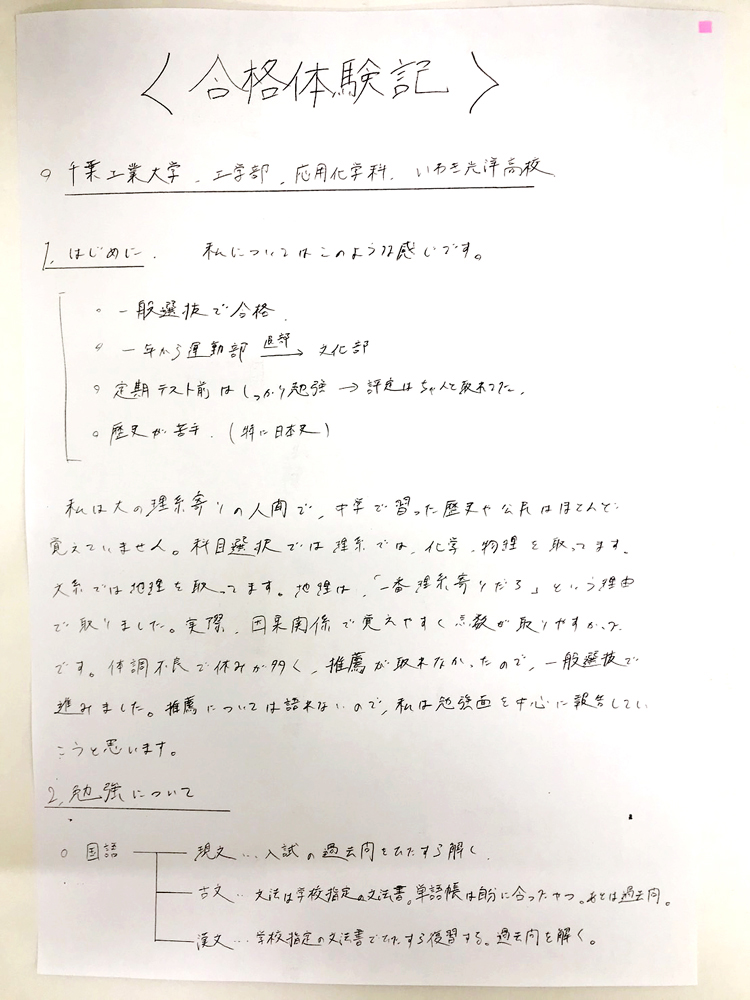 〈合格体験記〉
○ 千葉工業大学、工学部、応用化学科、いわき光洋高校
1. はじめに. 私についてはこのような感じです。
○ 一般選抜で合格.
○ 一年から運動部 退部→ 文化部
○ 定期テスト前はしっかり勉強 → 評定はちゃんと取れてた.
○ 歴史が苦手. (特に日本史)
私は大の理系寄りの人間で、中学で習った歴史や公民はほとんど
覚えていません。科目選択では理系では、化学、物理を取ってます.
文系では地理を取ってます。地理は、「一番理系寄りだろ」という理由
で取りました。実際、因果関係で覚えやすく点数が取りやすかった
です。体調不良で休みが多く、推薦が取れなかったので、一般選抜で
進みました。推薦については語れないので、私は勉強面を中心に報告してい
こうと思います。
2. 勉強について
○ 国語 現文…入試の過去問をひたすら解く.
古文…文法は学校指定の文法書。単語帳は自分に合ったやつ。あとは過去問。
漢文…学校指定の文法書でひたすら復習する。過去問を解く。